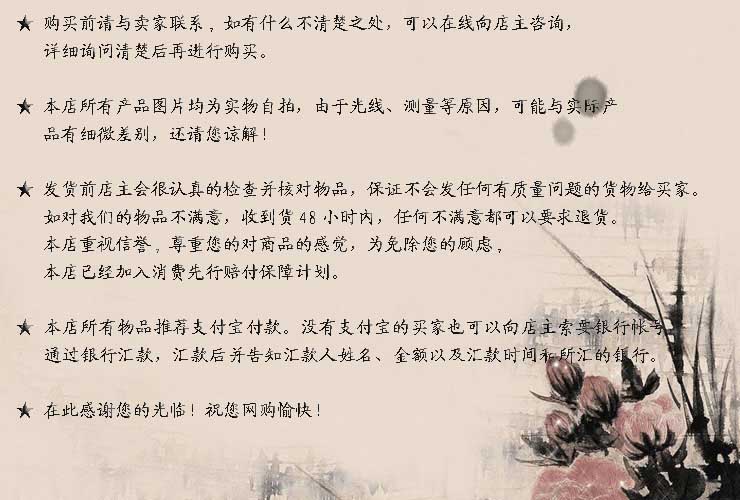 ★ 购买前请与卖家联系。如有什么不清楚之处，可以在线向店主咨询，
详细询问清楚后再进行购买。
★ 本店所有产品图片均为实物自拍，由于光线、测量等原因，可能与实际产
品有细微差别，还请您谅解！
★ 发货前店主会很认真的检查并核对物品，保证不会发任何有质量问题的货物给买家。
如对我们的物品不满意，收到货48小时内，任何不满意都可以要求退货。
本店重视信誉。尊重您的对商品的感觉，为免除您的顾虑。
本店已经加入消费先行赔付保障计划。
★ 本店所有物品推荐支付宝付款。没有支付宝的买家也可以向店主索要银行帐号
通过银行汇款，汇款后并告知汇款人姓名、金额以及汇款时间和所汇的银行。
★ 在此感谢您的光临！祝您网购愉快！